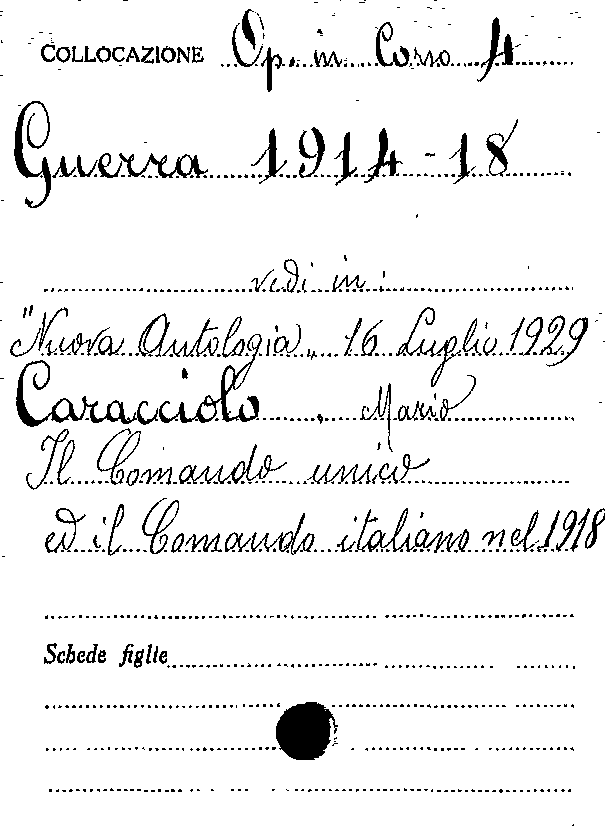 COLLOCAZIONE Op. in Corso 4
Guerra 1914-18
vedi in:
"Nuova Antologia„ 16 Luglio 1929
Caracciolo, Mario
Il Comando unico
ed il Comando italiano nel 1918
Schede figlie